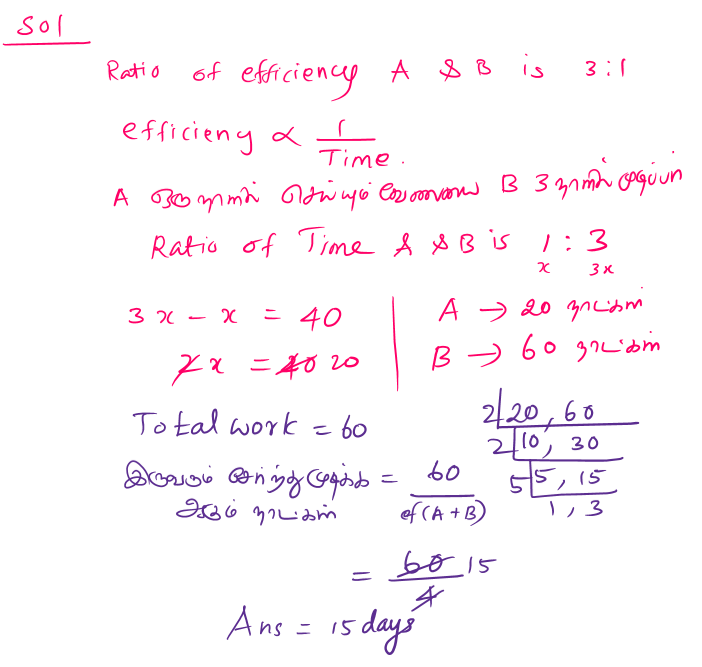 Sol
Ratio of efficiency A & B is 3:1
efficieny ∝ 1/Time.
A ஒரு நாள் செய்யும் வேலையை B 3 நாளில் முடிப்பா
Ratio of Time A & B is 1 : 3
x 3x
3x - x = 40
2x = 40 20
A → 20 நாட்கள்
B → 60 நாட்கள்
Total work = 60
2 20, 60
2 10, 30
5 5, 15
1, 3
இருவரும் சேர்ந்து முடிக்க = 60
ஆகும் நாட்கள் ef(A+B)
= 60 15
4
Ans = 15 days